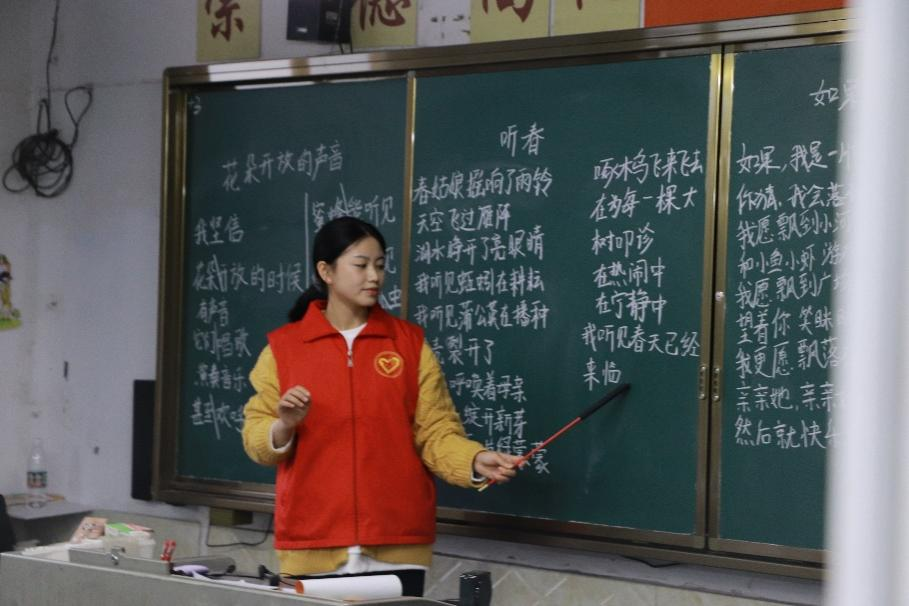 花朵开放的声音
我坚信
花朵开放的时候
有声音
它们唱歌
演奏音乐
甚至欢呼
蜜蜂能听见
见
听春
春姑娘摇响了雨铃
天空飞过雁阵
湖水睁开了亮眼睛
我听见蚯蚓在耕耘
我听见蒲公英在播种
裂开了
呼唤着母亲
绽开新芽
蒙
啄木鸟飞来飞去
在为每一棵大
树叩诊
在热闹中
在宁静中
我听见春天已经
来临
如果
如果,我是一片
你猜,我会落
我愿飘到小河
和小鱼小虾游
我愿飘到广场
望着你,笑眯
我更愿飘落
亲亲她,亲亲
然后就快乐